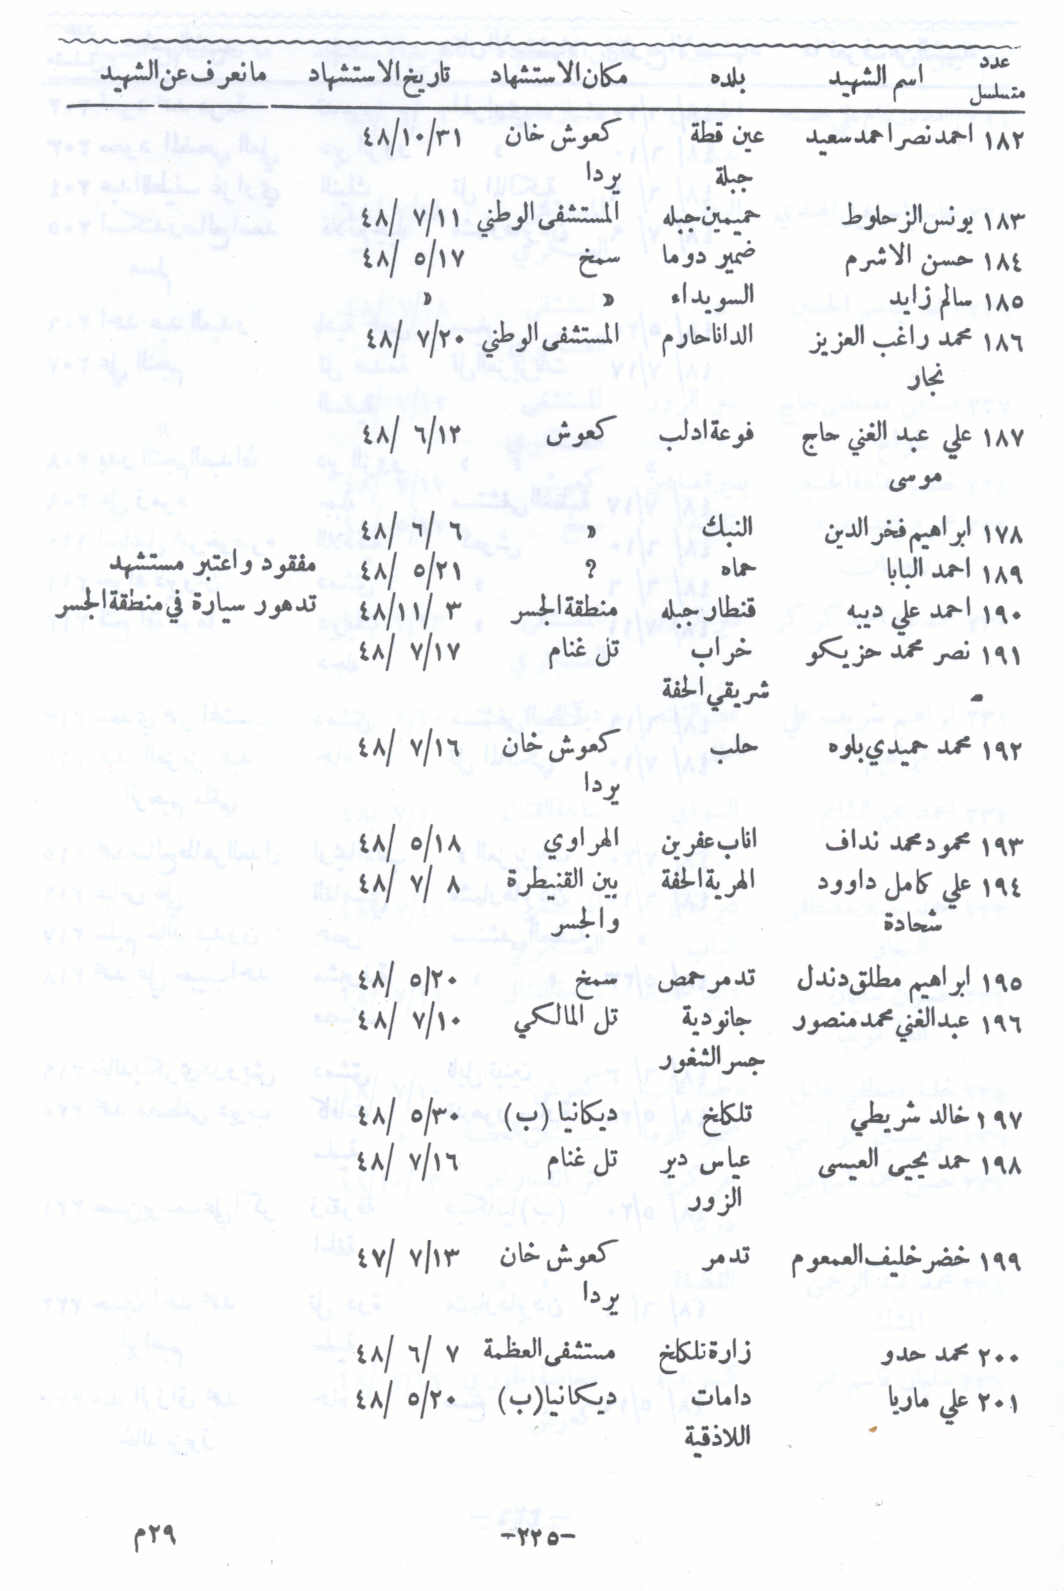 عدد متسلسل اسم الشهيد بلده مكان الاستشهاد تاريخ الاستشهاد مانعرف عن الشهيد
١٨٢ احمد نصر احمد سعيد عين قطة كعوش خان ٤٨/١٠/٣١
جبلة يردا
١٨٣ يونس الزحلوط حميمين جبله المستشفى الوطني ٤٨/ ٧/١١
١٨٤ حسن الاشرم ضمير دوما سمخ ٤٨/ ٥/١٧
١٨٥ سالم زايد السويداء » »
١٨٦ محمد راغب العزيز الدانا حارم المستشفى الوطني ٤٨/ ٧/٢٠
نجار
١٨٧ علي عبد الغني حاج فوعة ادلب كعوش ٤٨/ ٦/١٢
موسى
١٧٨ ابراهيم فخر الدين النبك » ٤٨/ ٦/ ٦
١٨٩ احمد البابا حماه ؟ ٤٨/ ٥/٢١ مفقود واعتبر مستشهد
١٩٠ احمد علي ديبه قنطار جبله منطقة الجسر ٤٨/١١/ ٣ تدهور سيارة في منطقة الجسر
١٩١ نصر محمد حزيكو خراب تل غنام ٤٨/ ٧/١٧
شريقي الحفة
١٩٢ محمد حميدي بلوه حلب كعوش خان ٤٨/ ٧/١٦
يردا
١٩٣ محمود محمد نداف اناب عفرين الهراوي ٤٨/ ٥/١٨
١٩٤ علي كامل داوود الهرية الحفة بين القنيطرة ٤٨/ ٧/ ٨
شحادة والجسر
١٩٥ ابراهيم مطلق دندل تدمر حمص سمخ ٤٨/ ٥/٢٠
١٩٦ عبدالغني محمد منصور جانودية تل المالكي ٤٨/ ٧/١٠
جسر الشغور
١٩٧ خالد شريطي تلكلخ ديكانيا (ب) ٤٨/ ٥/٣٠
١٩٨ حمد يحيى العيسى عياس دير تل غنام ٤٨/ ٧/١٦
الزور
١٩٩ خضر خليف العمعوم تدمر كعوش خان ٤٧/ ٧/١٣
يردا
٢٠٠ محمد حدو زارة تلكلخ مستشفى العظمة ٤٨/ ٦/ ٧
٢٠١ علي ماريا دامات ديكانيا (ب) ٤٨/ ٥/٢٠
اللاذقية
-٢٢٥- ٢٩م